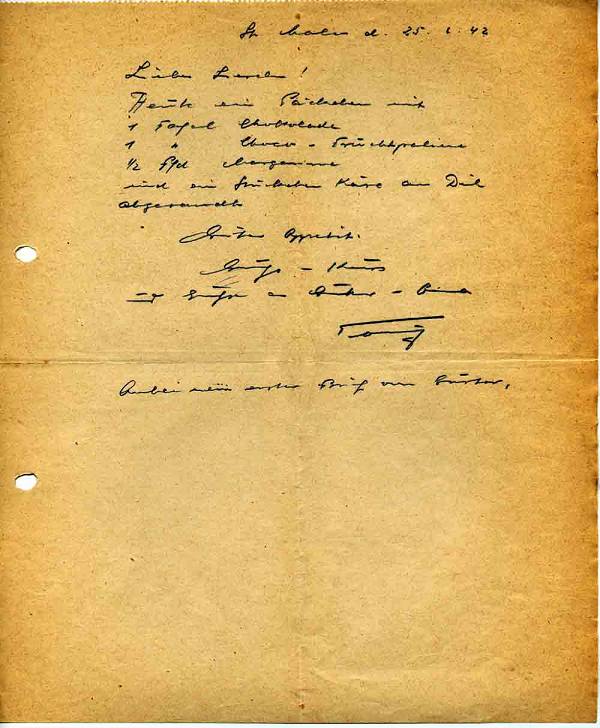 St. Malo d. 25. 6. 42
Liebe !
Heute ein Päckchen mit
1 Tafel Chokolade
1 " Choco - Früchtpraline
1/2 Pfd Margarine
und ein Stückchen Käse an Dich
abgesandt
Guten Appetit.
Gruß - Kuss
Gruß an -
Anbei ein erster Brief von